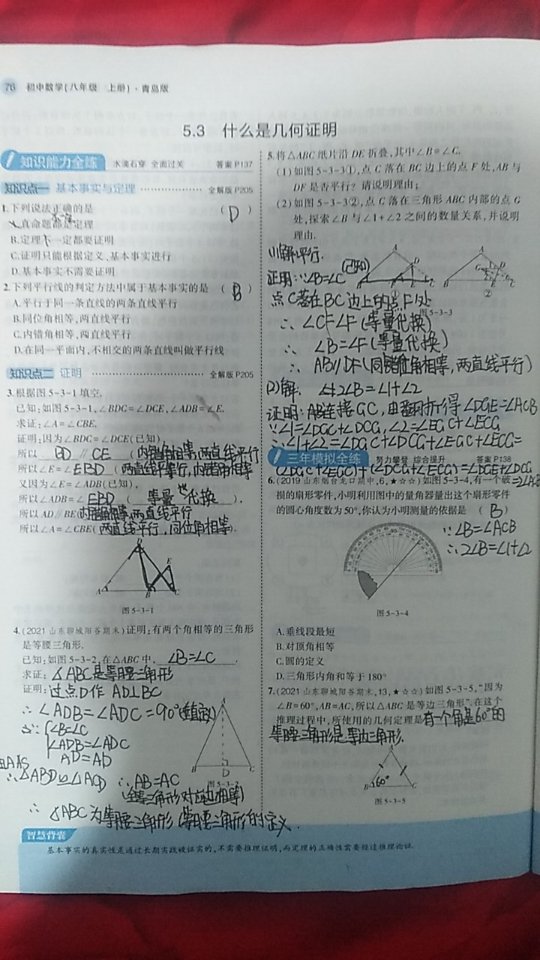 76 初中数学(八年级 上册)·青岛版
5.3 什么是几何证明
知识能力全练 水滴石穿 全面过关 答案P137
知识点一 基本事实与定理 全解版P205
1.下列说法正确的是 ( D )
A.真命题都是定理
B.定理不一定都要证明
C.证明只能根据定义、基本事实进行
D.基本事实不需要证明
2.下列平行线的判定方法中属于基本事实的是 ( B )
A.平行于同一条直线的两条直线平行
B.同位角相等,两直线平行
C.内错角相等,两直线平行
D.在同一平面内,不相交的两条直线叫做平行线
知识点二 证明 全解版P205
3.根据图5-3-1填空.
已知:如图5-3-1,∠BDC=∠DCE,∠ADB=∠E.
求证:∠A=∠CBE.
证明:因为∠BDC=∠DCE(已知),
所以 BD ∥ CE (内错角相等,两直线平行
所以∠E=∠EBD(两直线平行,内错角相等
又因为∠E=∠ADB(已知),
所以∠ADB=∠EBD ( 等量代换 ),
所以AD∥BE(内错角相等,两直线平行
所以∠A=∠CBE(两直线平行,同位角相等).
A D E B C
图5-3-1
4.(2021山东聊城阳谷期末)证明:有两个角相等的三角形
是等腰三角形.
已知:如图5-3-2,在△ABC中, ∠B=∠C
求证: △ABC是等腰三角形
证明:过点D作AD⊥BC
∴∠ADB=∠ADC=90°
∠B=∠C
∠ADB=∠ADC
AD=AD
∴△ABD≌△ACD ∴AB=AC
(全等三角形对应边相等)
∴△ABC为等腰三角形(等腰三角形的定义
A B D C
图5-3-2
5.将△ABC纸片沿DE折叠,其中∠B=∠C.
(1)如图5-3-3①,点C落在BC边上的点F处,AB与
DF是否平行?请说明理由;
(2)如图5-3-3②,点C落在三角形ABC内部的点G
处,探索∠B与∠1+∠2之间的数量关系,并说明
理由.
(1)解:平行.
证明:∵∠B=∠C(已知)
点C落在BC边上的点F处
图5-3-3
∴∠C=∠F(等量代换)
∴∠B=∠F(等量代换)
∴AB∥DF(同位角相等,两直线平行)
(2)解:2∠B=∠1+∠2
证明:连接GC,由翻折得∠DGE=∠ACB
∵∠1=∠DGC+∠DCG,∠2=∠EGC+∠ECG
∴∠1+∠2=∠DGC+∠DCG+∠EGC+∠ECG=
(∠DGC+∠EGC)+(∠DCG+∠ECG)=∠DGE+∠DCG
=2∠ACB
∵∠B=∠ACB
∴2∠B=∠1+∠2
三年模拟全练 努力攀登 综合提升 答案P138
6.(2019山东烟台龙口期中,6,★☆☆)如图5-3-4,有一个破
损的扇形零件,小明利用图中的量角器量出这个扇形零件
的圆心角度数为50°,你认为小明测量的依据是 ( B )
图5-3-4
A.垂线段最短
B.对顶角相等
C.圆的定义
D.三角形内角和等于180°
7.(2021山东聊城阳谷期末,13,★☆☆)如图5-3-5,“因为
∠B=60°,AB=AC,所以△ABC是等边三角形”.在这个
推理过程中,所使用的几何定理是有一个角是60°的
等腰三角形是等边三角形.
A B 60° C
图5-3-5
智慧背囊
基本事实的真实性是通过长期实践被证实的,不需要推理证明,而定理的正确性需要经过推理论证.